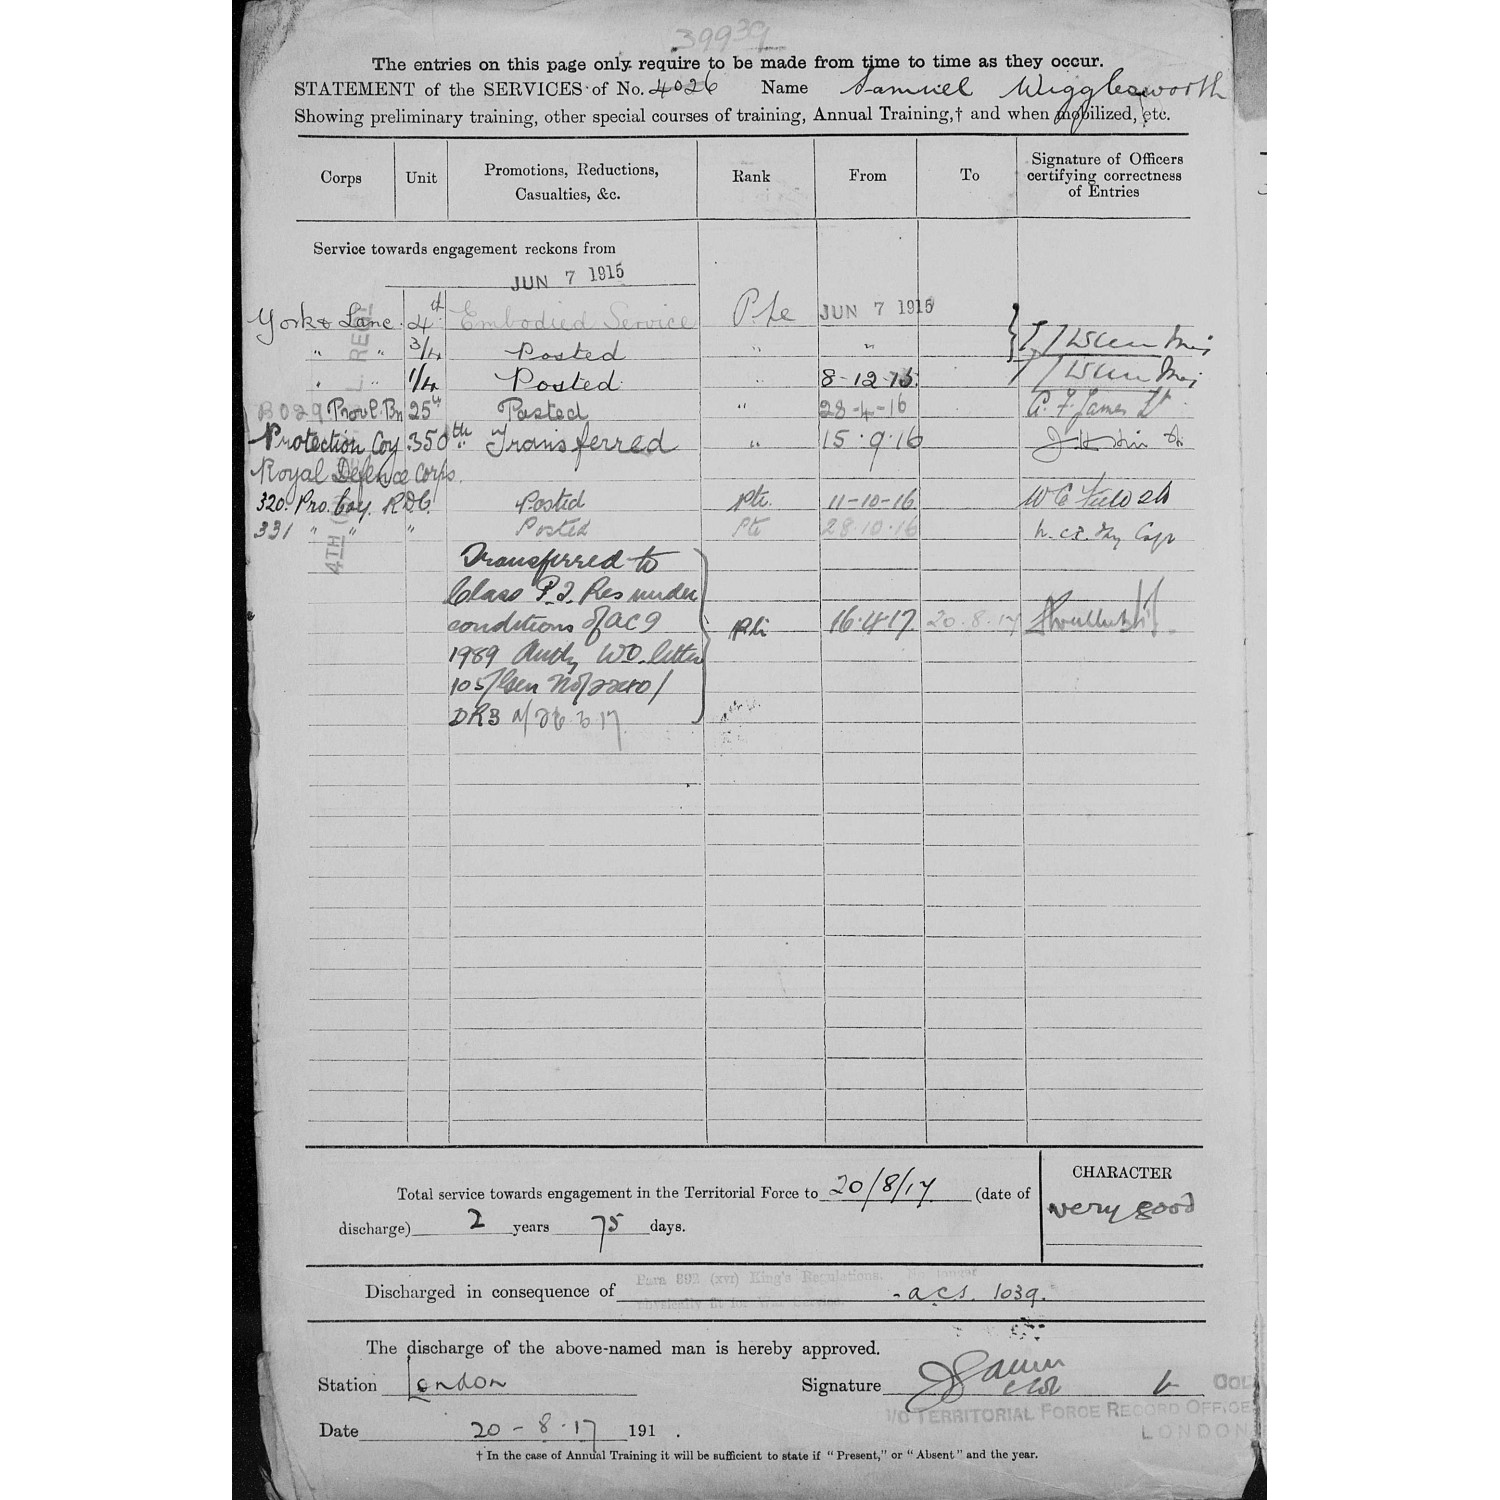 39939
The entries on this page only require to be made from time to time as they occur.
STATEMENT of the SERVICES of No. 4026 Name Samuel Wigglesworth
Showing preliminary training, other special courses of training, Annual Training,† and when mobilized, etc.
Corps Unit Promotions, Reductions, Casualties, &c. Rank From To Signature of Officers certifying correctness of Entries
Service towards engagement reckons from
JUN 7 1915
York & Lanc. 4th Embodied Service Pte JUN 7 1915
" " 3/4 Posted " "
" " 1/4 Posted " 8-12-15
Provl. Bn 25th Posted " 28-4-16 A. F. James Lt
Protection Coy. 350th Transferred " 15.9.16
Royal Defence Corps.
320. Pro. Coy. RDC. Posted Pte. 11-10-16
331 " " " Posted Pte 28.10.16 Capt
4TH
Transferred to
Class P. Res under
conditions of ACI
1989 Auth WO. letter Pte 16.4.17 20.8.17
105/Gen No/
DR3 26.3.17
Total service towards engagement in the Territorial Force to 20/8/17 (date of
discharge) 2 years 75 days.
CHARACTER
very good
Discharged in consequence of Para 392 (xvi) King's Regulations. No longer
physically fit for War Service. 1039.
The discharge of the above-named man is hereby approved.
Station London Signature COL
I/C TERRITORIAL FORCE RECORD OFFICE
LONDON
Date 20-8.17 191 .
† In the case of Annual Training it will be sufficient to state if "Present," or "Absent" and the year.